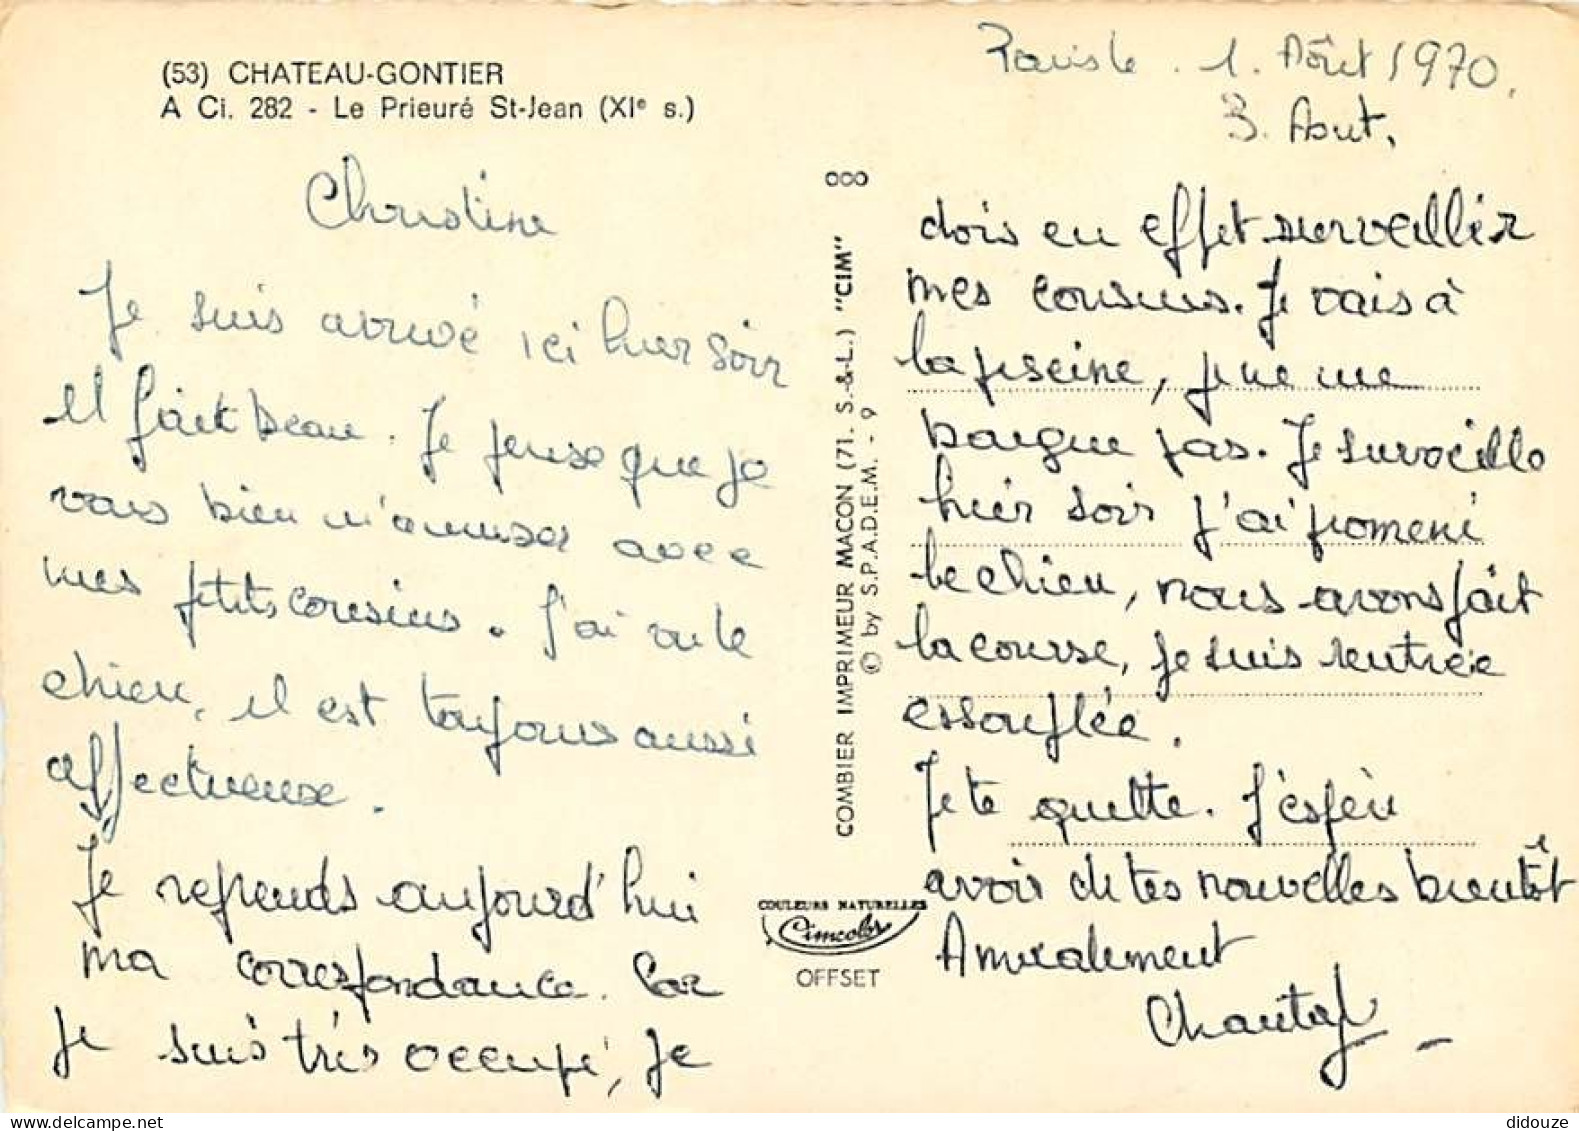 (53) CHATEAU-GONTIER
A Ci. 282 - Le Prieuré St-Jean (XIe s.)
Christine
Je suis arrivé ici hier soir
il fait beau. Je pense que je
vais bien m'amuser avec
mes petits cousins. J'ai vu le
chien, il est toujours aussi
affectueuse.
Je reprends aujourd'hui
ma correspondance. Car
je suis très occupé, je
COMBIER IMPRIMEUR MACON (71. S.-&-L.) "CIM"
© by S.P.A.D.E.M. - 9
COULEURS NATURELLES
Cimcolor
OFFSET
1. Août 1970.
3. Aout.
dois en effet surveiller
mes cousins. Je vais à
la piscine, je ne me
baigne pas. Je surveille
hier soir j'ai promené
le chien, nous avons fait
la course, je suis rentrée
essouflée.
Je te quitte. J'espère
avoir de tes nouvelles bientôt
Amicalement
Chantal
didouze